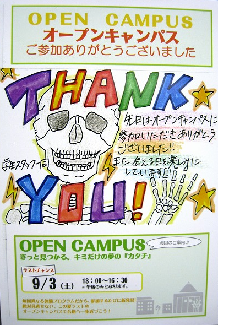 OPEN CAMPUS
オープンキャンパス
ご参加ありがとうございました
THANK
YOU!
先日はオープンキャンパスに
参加いただきありがとう
ございました!
また会える日を楽しみに
しています!!
OPEN CAMPUS
きっと見つかる、キミだけの夢の『カタチ』
ラストチャンス
9/3(土)
13:00〜16:30